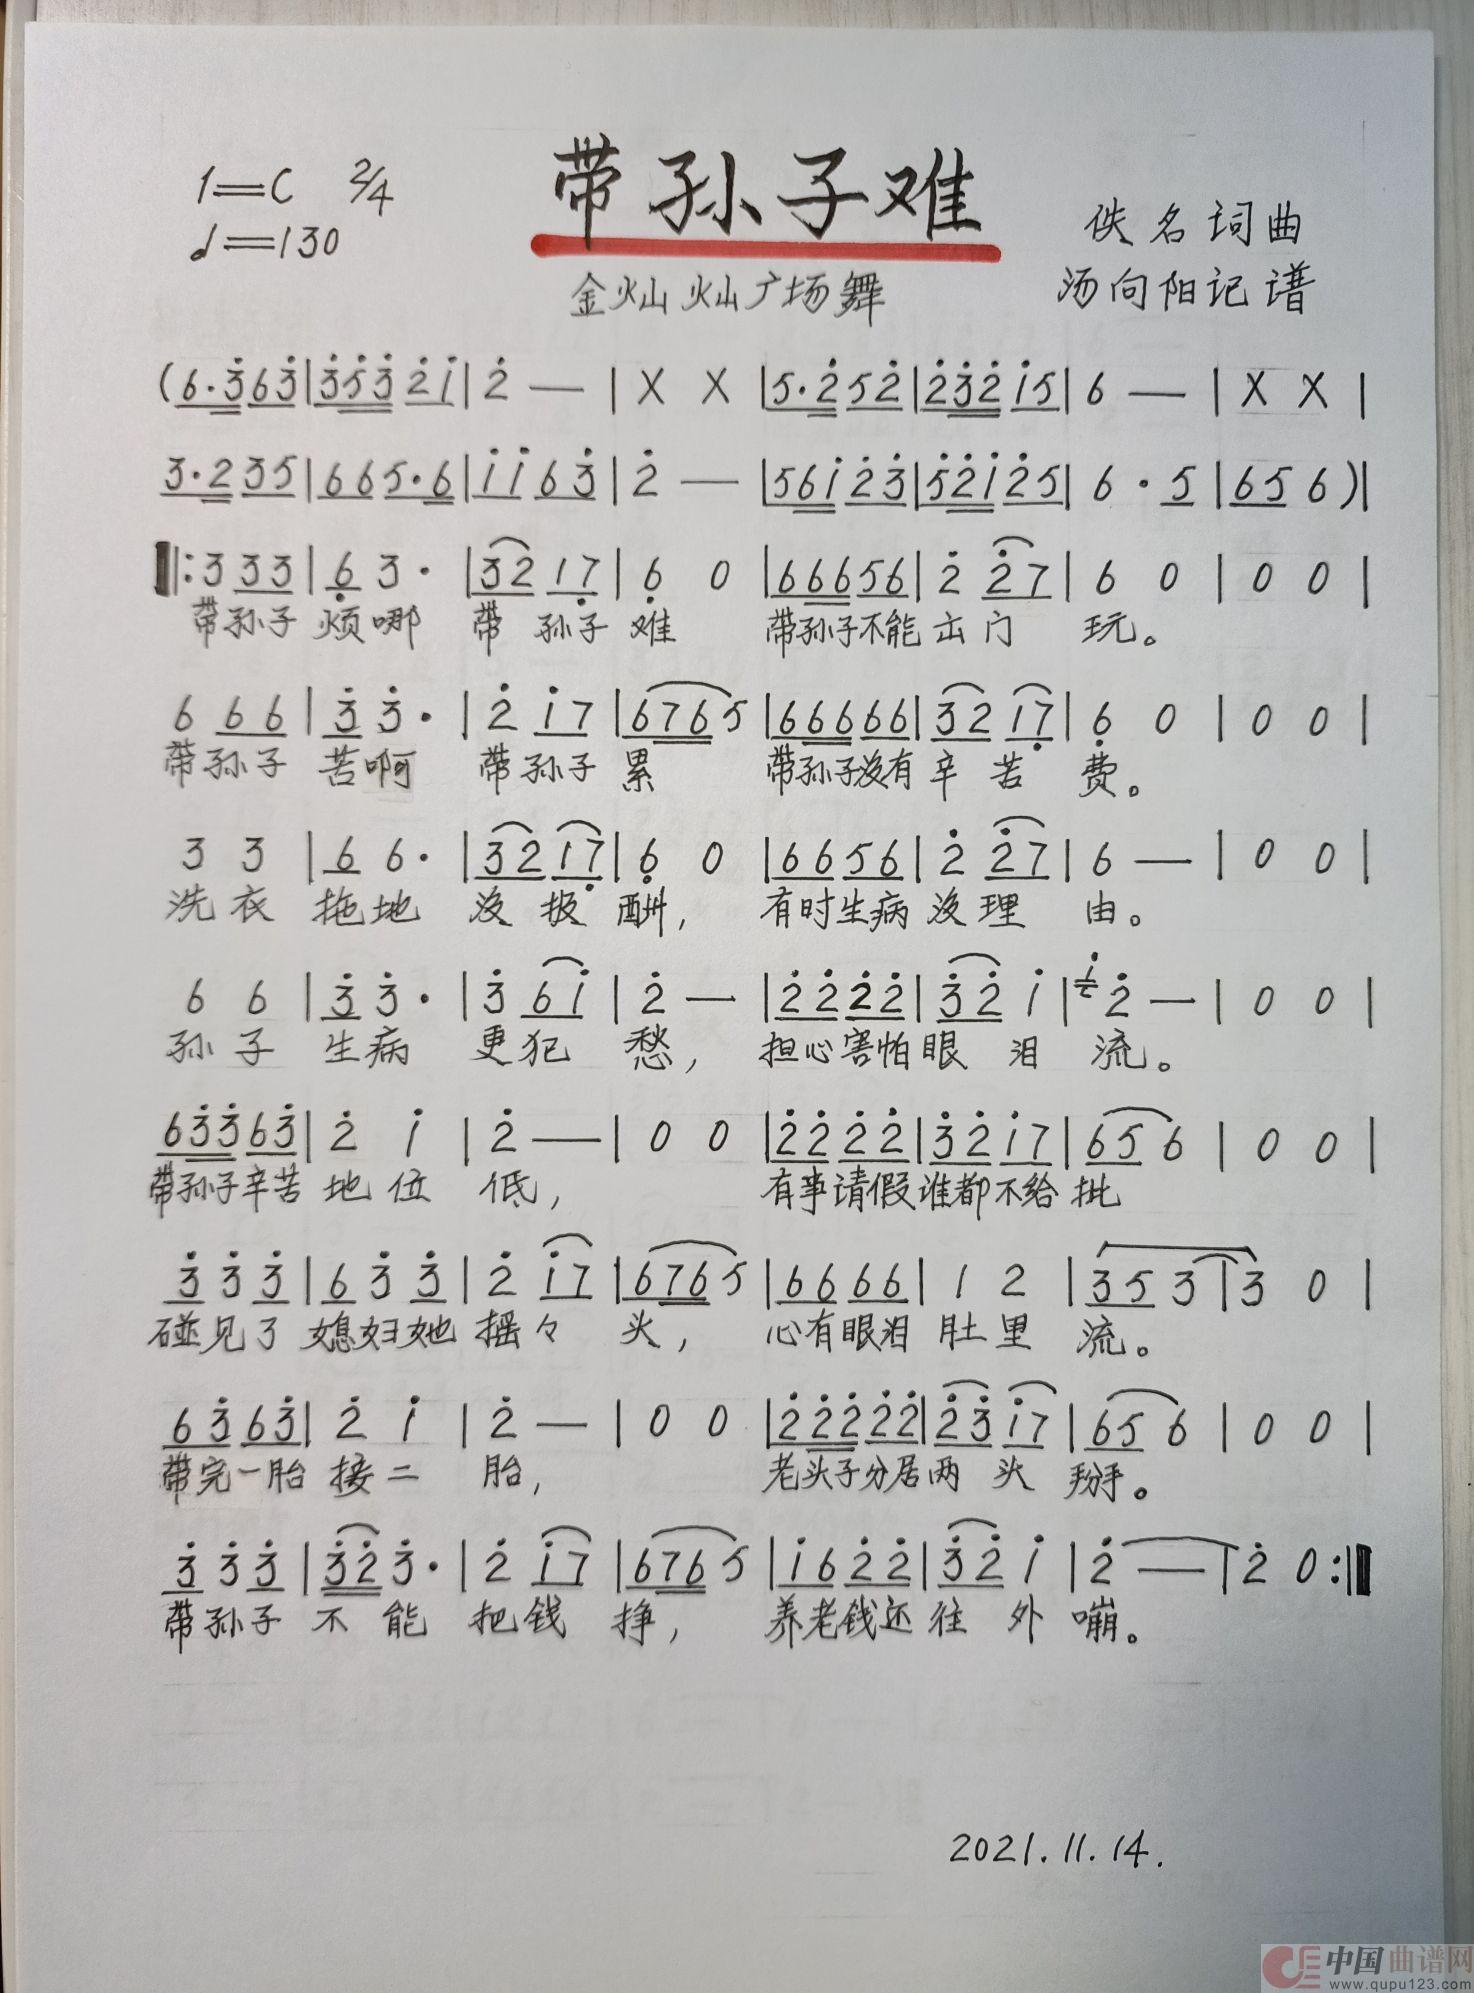 1=C 2/4
♩=130
带孙子难
金灿灿广场舞
佚名词曲
汤向阳记谱
(6·3̇63̇|3̇5̇3̇2̇1̇|2̇ — |X X |5·2̇52̇|2̇3̇2̇1̇5|6 — |X X |
3·235|665·6|1̇1̇63̇|2̇ — |561̇2̇3̇|5̇2̇1̇2̇5|6·5|656)|
‖:3 33|6̣ 3·|32 17̣|6̣ 0|66656|2̇ 2̇7|6 0|0 0|
带孙子 烦哪 带 孙子 难 带孙子不能出门 玩。
6 66|3̇ 3̇·|2̇ 1̇7|6765|66666|32 17̣|6̣ 0|0 0|
带孙子 苦啊 带孙子 累 带孙子没有辛 苦 费。
3 3|6 6·|32 17̣|6̣ 0|6656|2̇ 2̇7|6 — |0 0|
洗衣 拖地 没 报 酬, 有时生病没理 由。
6 6|3̇ 3̇·|3̇ 61̇|2̇ — |2̇2̇2̇2̇|3̇2̇ 1̇|1̇2̇ — |0 0|
孙子 生病 更犯 愁, 担心害怕眼 泪 流。
63̇3̇63̇|2̇ 1̇|2̇ — |0 0|2̇2̇2̇2̇|3̇2̇1̇7|656|0 0|
带孙子辛苦 地位 低, 有事请假谁都不给批
3̇ 3̇ 3̇|6 3̇ 3̇|2̇ 1̇7|6765|6666|1 2|353|3 0|
碰见了 媳妇她 摇々 头, 心有眼泪 肚里 流。
63̇63̇|2̇ 1̇|2̇ — |0 0|2̇2̇2̇2̇2̇|2̇3̇ 1̇7|656|0 0|
带完一胎 接二 胎, 老头子分居两 头 掰。
3̇ 3̇ 3̇|3̇2̇3̇·|2̇ 1̇7|6765|1̇62̇2̇|3̇2̇ 1̇|2̇ — |2̇ 0:‖
带孙子 不 能 把钱 挣, 养老钱还往 外 嘣。
2021.11.14.
中国曲谱网
www.qupu123.com